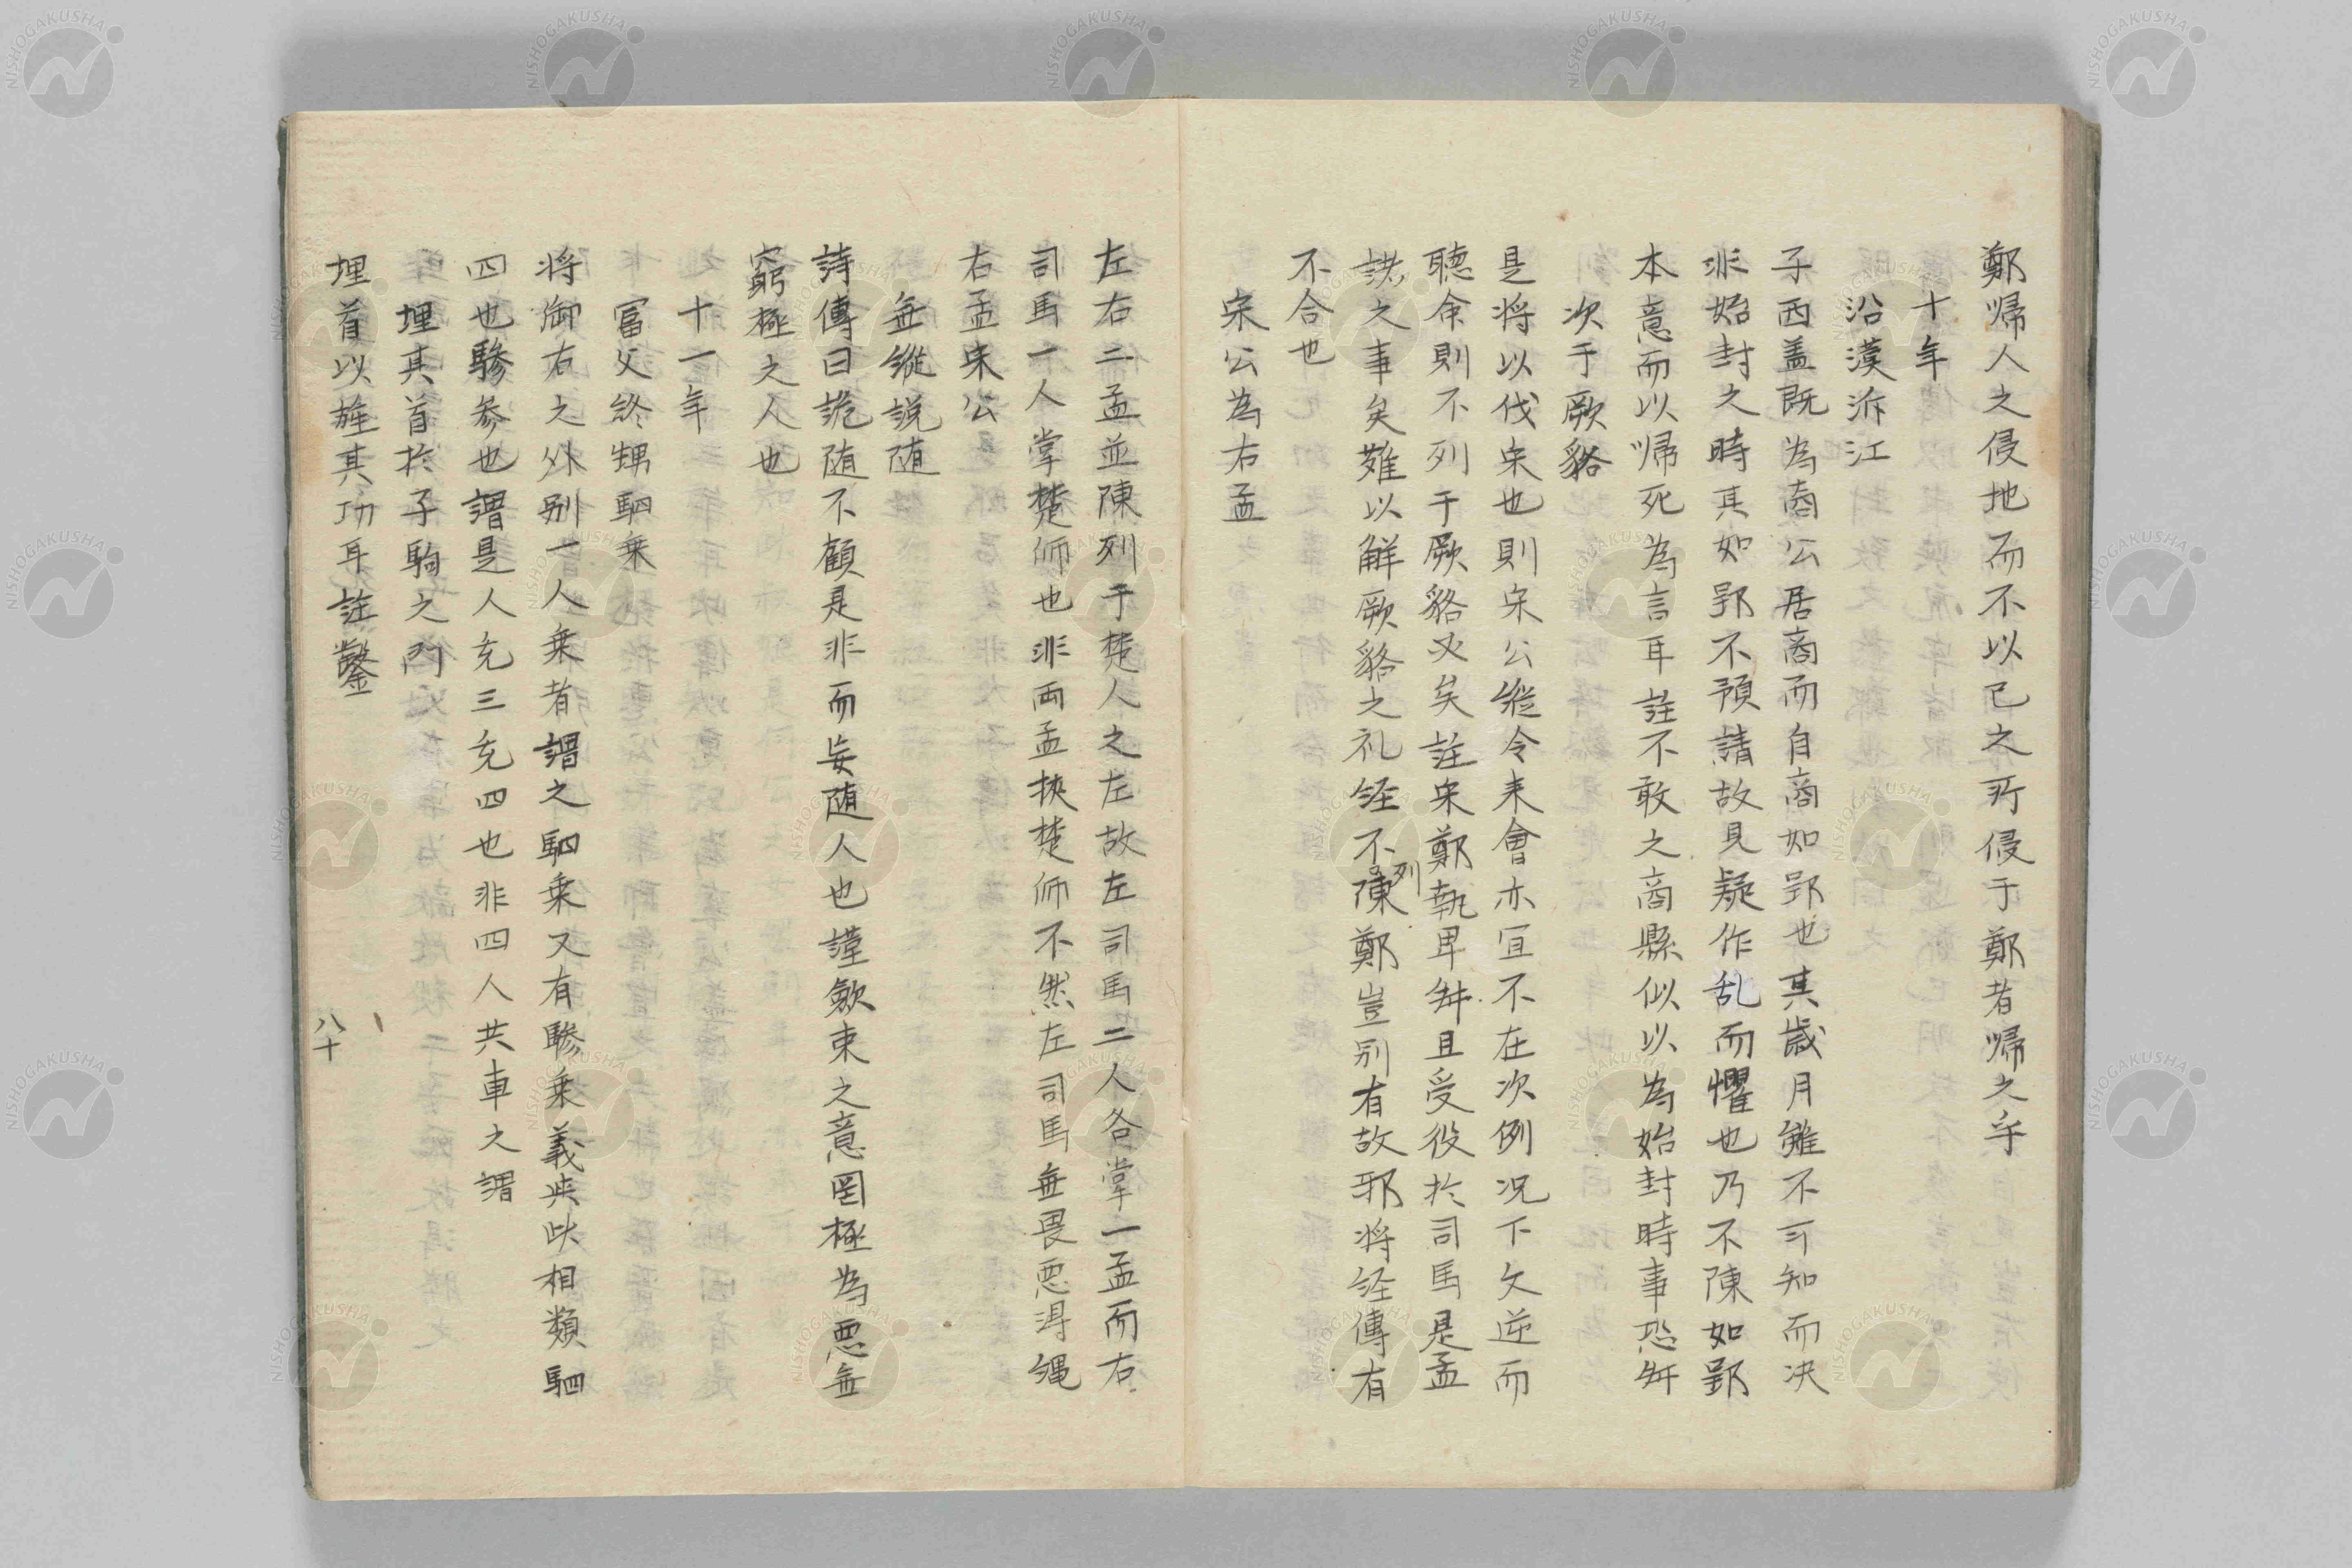 鄭帰人之侵地而不以己之所侵于鄭者帰之乎
十年
沿漢泝江
子西盖既為商公居商而自商如郢也其歳月雖不可知而决
非始封之時其如郢不預請故見疑作乱而懼也乃不陳如郢
本意而以帰死為言耳註不敢之商縣似以為始封時事恐舛
次于厥貉
是将以伐宋也則宋公縦令来會亦宜不在次例况下文逆而
聴命則不列于厥貉必矣註宋鄭執卑舛且受役於司馬是孟
諸之事矣難以解厥貉之礼経不陳列鄭豈别有故邪将経傳有
不合也
宋公為右孟
左右二孟並陳列于楚人之左故左司馬二人各掌一孟而右
司馬一人掌楚師也非両孟挟楚師不然左司馬無畏悪得縄
右孟宋公
無縦説随
詩傳曰詭随不顧是非而妄随人也謹歛束之意罔極為悪無
窮極之人也
十一年
冨父終甥駟乗
将御右之外别一人乗者謂之駟乗又有驂乗義与此相類駟
四也驂参也謂是人充三充四也非四人共車之謂
埋其首於子駒之門
埋首以旌其功耳註鑿
八十
NISHOGAKUSHA